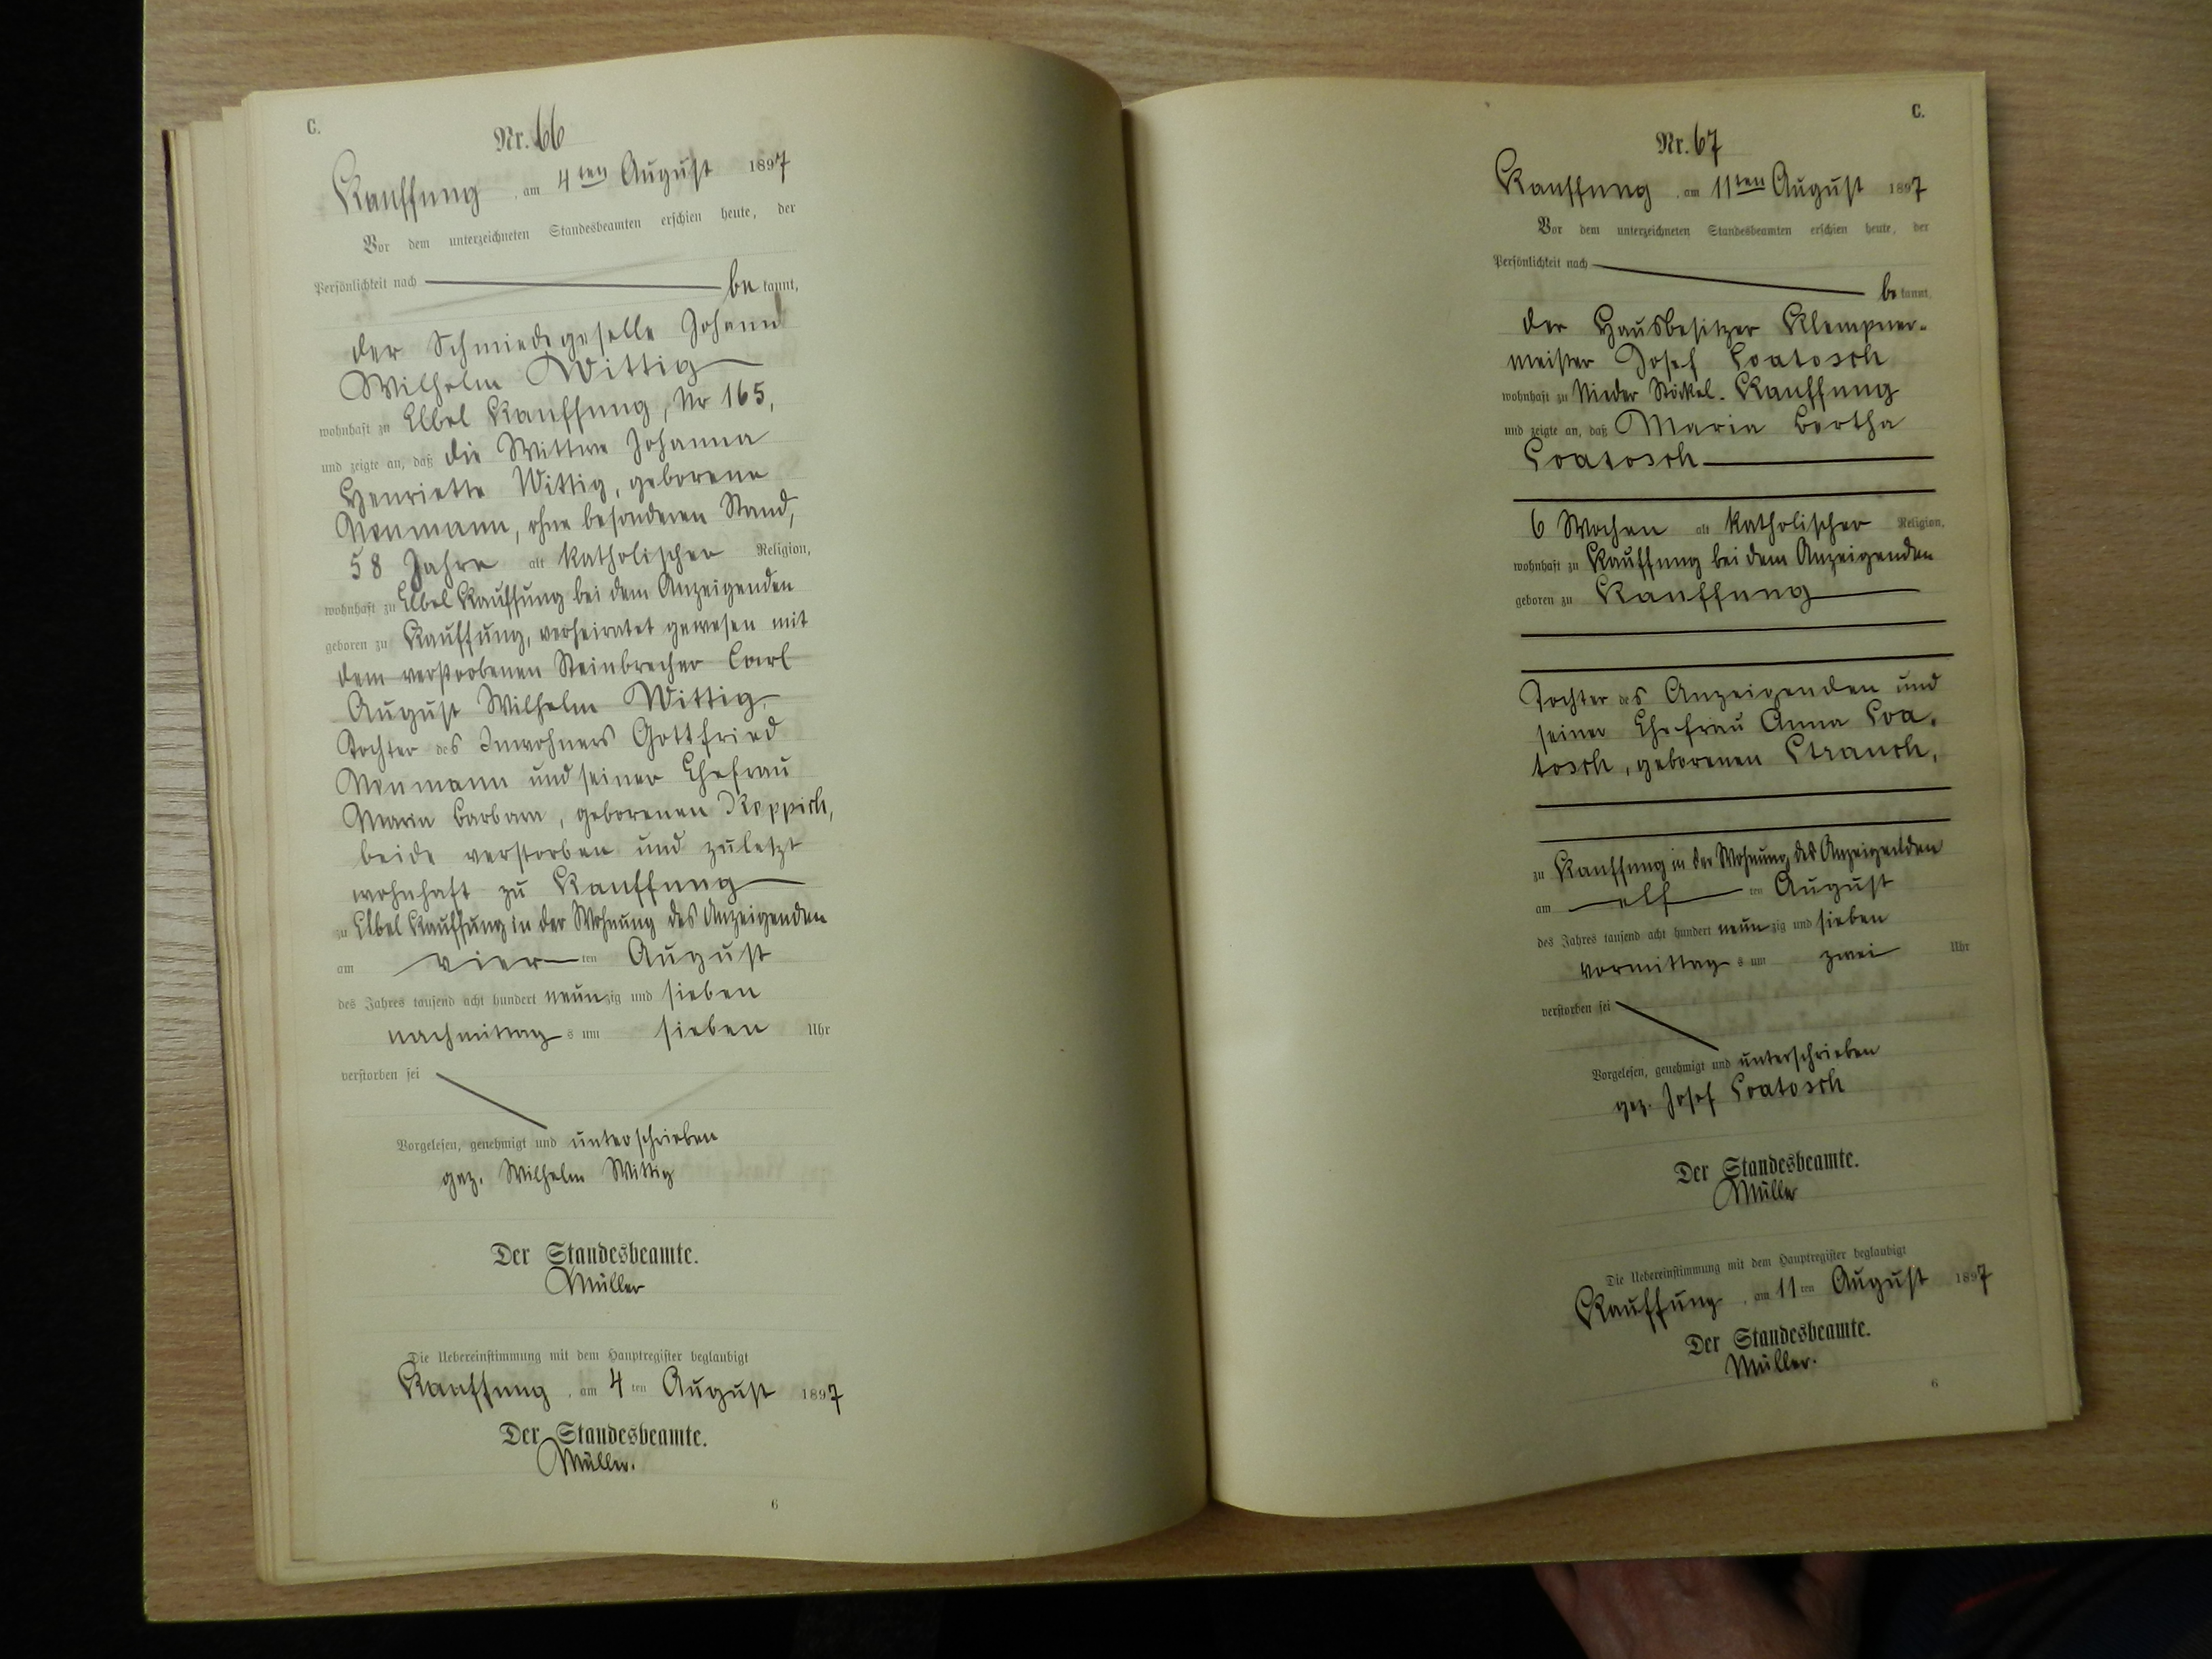 C.
Nr. 66
Kauffung, am 4ten August 1897
Vor dem unterzeichneten Standesbeamten erschien heute, der
Persönlichkeit nach be kannt,
der Schmiedegeselle Johann
Wilhelm Wittig
wohnhaft zu Elbel Kauffung, Nr 165,
und zeigte an, daß die Wittwe Johanna
Henriette Wittig, geborene
Neumann, ohne besonderen Stand,
58 Jahre alt katholischer Religion,
wohnhaft zu Elbel Kauffung bei dem Anzeigenden
geboren zu Kauffung, verheiratet gewesen mit
dem verstorbenen Steinbrecher Carl
August Wilhelm Wittig,
Tochter des Inwohners Gottfried
Neumann und seiner Ehefrau
Maria Barbara, geborenen Koppich,
beide verstorben und zuletzt
wohnhaft zu Kauffung
zu Elbel Kauffung in der Wohnung des Anzeigenden
am vier ten August
des Jahres tausend acht hundert neunzig und sieben
nachmittag s um sieben Uhr
verstorben sei
Vorgelesen, genehmigt und unterschrieben
gez. Wilhelm Wittig
Der Standesbeamte.
Müller
Die Uebereinstimmung mit dem Hauptregister beglaubigt
Kauffung, am 4 ten August 1897
Der Standesbeamte.
Müller.
6
C.
Nr. 67
Kauffung, am 11ten August 1897
Vor dem unterzeichneten Standesbeamten erschien heute, der
Persönlichkeit nach
be kannt,
der Hausbesitzer Klempner-
meister Josef Coatosch
wohnhaft zu Nieder Stöckel-Kauffung
und zeigte an, daß Maria Bertha
Coatosch
6 Wochen alt katholischer Religion,
wohnhaft zu Kauffung bei dem Anzeigenden
geboren zu Kauffung
Tochter des Anzeigenden und
seiner Ehefrau Anna Coa-
tosch, geborenen Strauch,
zu Kauffung in der Wohnung des Anzeigenden
am elf ten August
des Jahres tausend acht hundert neunzig und sieben
vormittag s um zwei Uhr
verstorben sei
Vorgelesen, genehmigt und unterschrieben
gez. Josef Coatosch
Der Standesbeamte.
Müller
Die Uebereinstimmung mit dem Hauptregister beglaubigt
Kauffung, am 11 ten August 1897
Der Standesbeamte.
Müller.
6